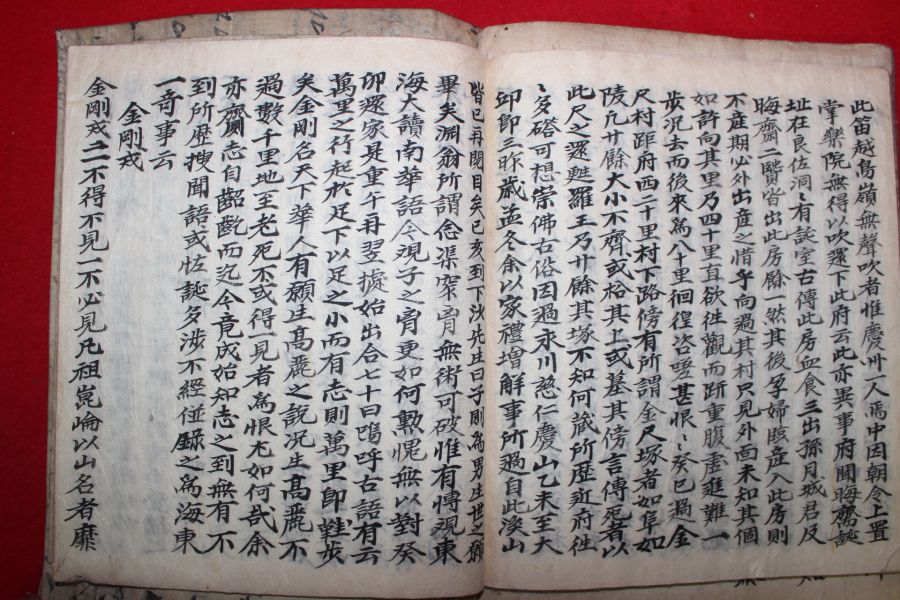 此笛越鳥嶺無聲吹者惟慶州一人焉中因朝令上置
掌樂院無得以吹還下此府云此亦異事府聞晦齋誕
址在良佐洞洞有誕室古傳此房血食三出孫月城君及
晦齋二賢皆出此房餘一然其後孕婦臨産入此房則
不産期必外出産之惜乎向過其村只見外面未知其個
如許向其里乃四十里直欲徃觀而跡重腹虛進難一
步況去而後來爲八十里徊徨咨嗟甚恨恨癸巳過金
尺村距府西二十里村下路傍有所謂金尺塚者如阜如
陵凡廿餘大小不齊或拾其上或墓其傍言傳死者以
此尺之還甦羅王乃廿餘其塚不知何藏所歷近府徃
徃多塔可想崇佛古俗因過永川慈仁慶山乙未至大
邱即三昨歲孟冬余以家禮增解事所過自此溪山
皆已再閱目矣己亥到下沙先生曰子則爲男生世之願
畢矣淵翁所謂念渠架脅無術可破惟有博觀東
海大讀南華語今觀子之脅更如何勳愧無以對癸
卯還家是重午再翌據始出合七十日嗚呼古語有云
萬里之行起於足下以足之小而有志則萬里即鞋步
矣金剛名天下華人有願生高麗之說況生高麗不
過數千里地至老死不或得一見者爲恨尤如何哉余
亦齎志自齠齔而迄今竟成始知志之到無有不
到所歷搜聞語或怪誕多涉不經併錄之爲海東
一奇事云
金剛戎
金剛戎二不得不見一不必見凡祖崑崙以山名者靡